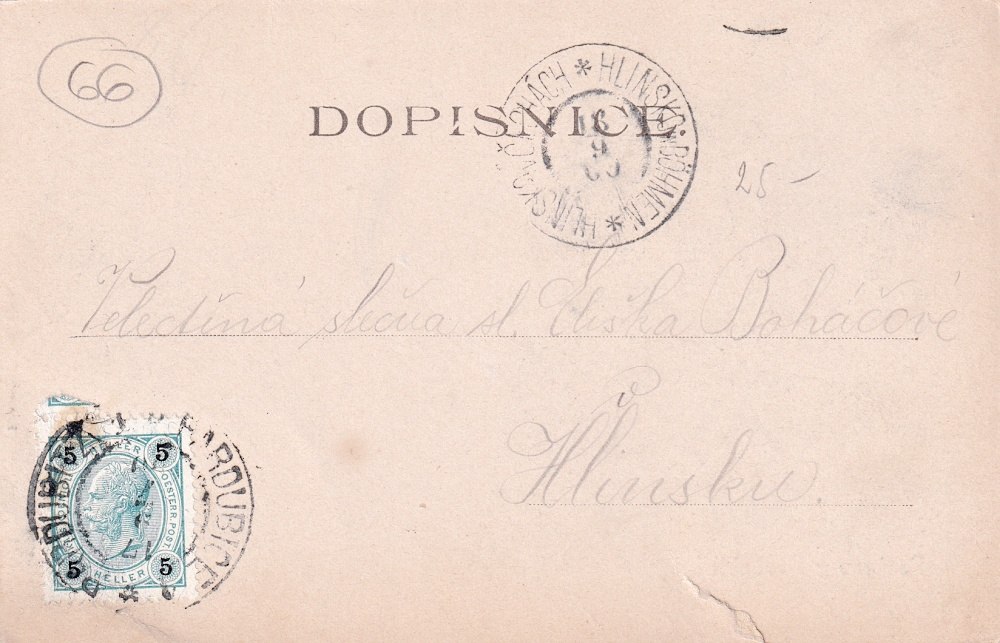 66
DOPISNICE.
HLINSKO i. BÖHMEN * HLINSKO v ČECHÁCH *
25 –
Velectěná slečna sl. Eliška Boháčové
v
Hlinsku.
PARDUBICE
PARDUBITZ
5 HELLER 5
OESTERR. POST
5 HELLER 5